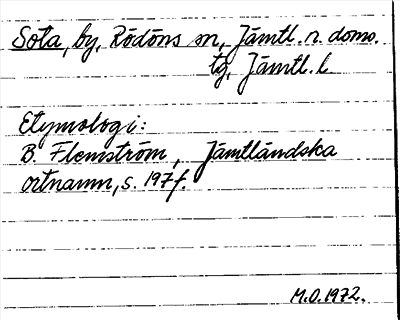 Sota, by, Rödöns sn, Jämtl. n. doms.
tg, Jämtl. l.
Etymologi:
B. Flemström, Jämtländska
ortnamn, s. 197f.
M.O. 1972.